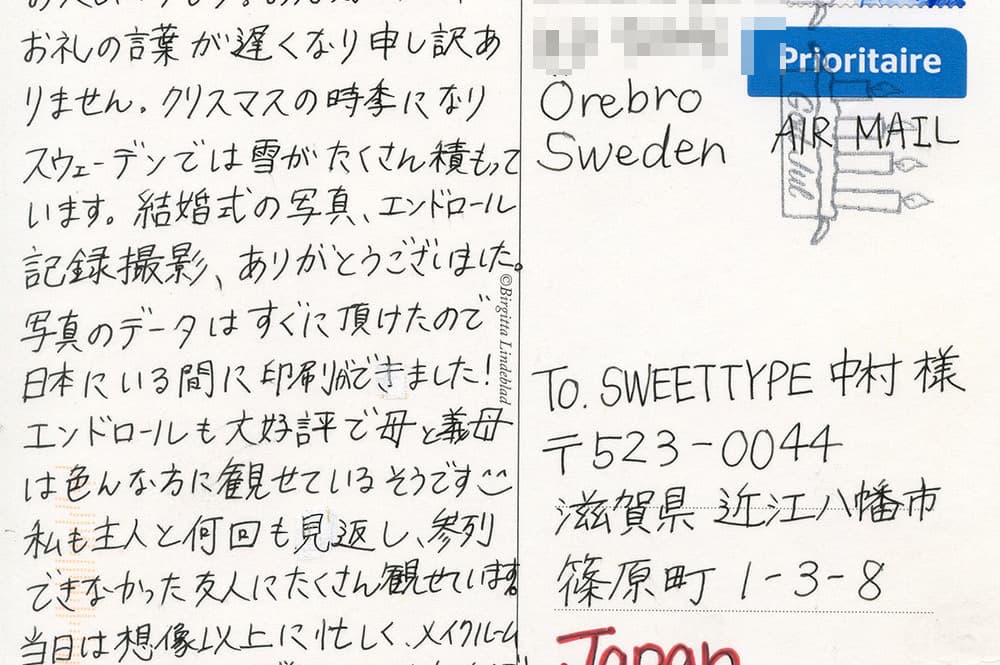 お礼の言葉が遅くなり申し訳あ
りません。クリスマスの時季になり
スウェーデンでは雪がたくさん積もって
います。結婚式の写真、エンドロール
記録撮影、ありがとうございました。
写真のデータはすぐに頂けたので
日本にいる間に印刷ができました!
エンドロールも大好評で母と義母
は色んな方に観せているそうです
私も主人と何回も見返し、参列
できなかった友人にたくさん観せています。
当日は想像以上に忙しく、メイクルーム
©Birgitta Lindeblad
Örebro
Sweden
Prioritaire
AIR MAIL
God Jul
To. SWEETTYPE 中村 様
〒523-0044
滋賀県 近江八幡市
篠原町 1-3-8
Japan